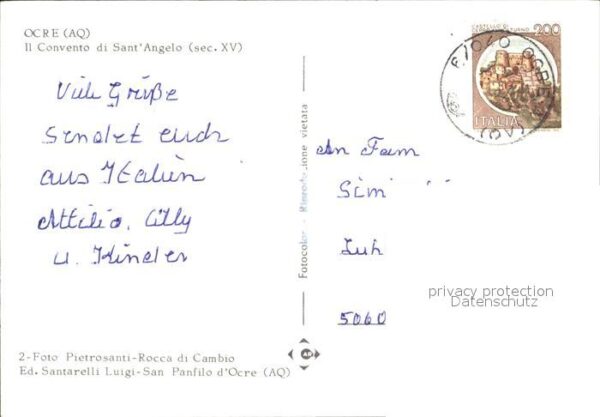 OCRE (AQ)
Il Convento di Sant'Angelo (sec. XV)
Viele Grüße
Sendet euch
aus Italien
Attilio, Cilly
u. Kinder
Fotocolor - Riproduzione vietata
200
ITALIA
67040 OCRE
(AQ)
An Fam
Simi
Luh
5060
privacy protection
Datenschutz
2-Foto Pietrosanti-Rocca di Cambio
Ed. Santarelli Luigi-San Panfilo d'Ocre (AQ)